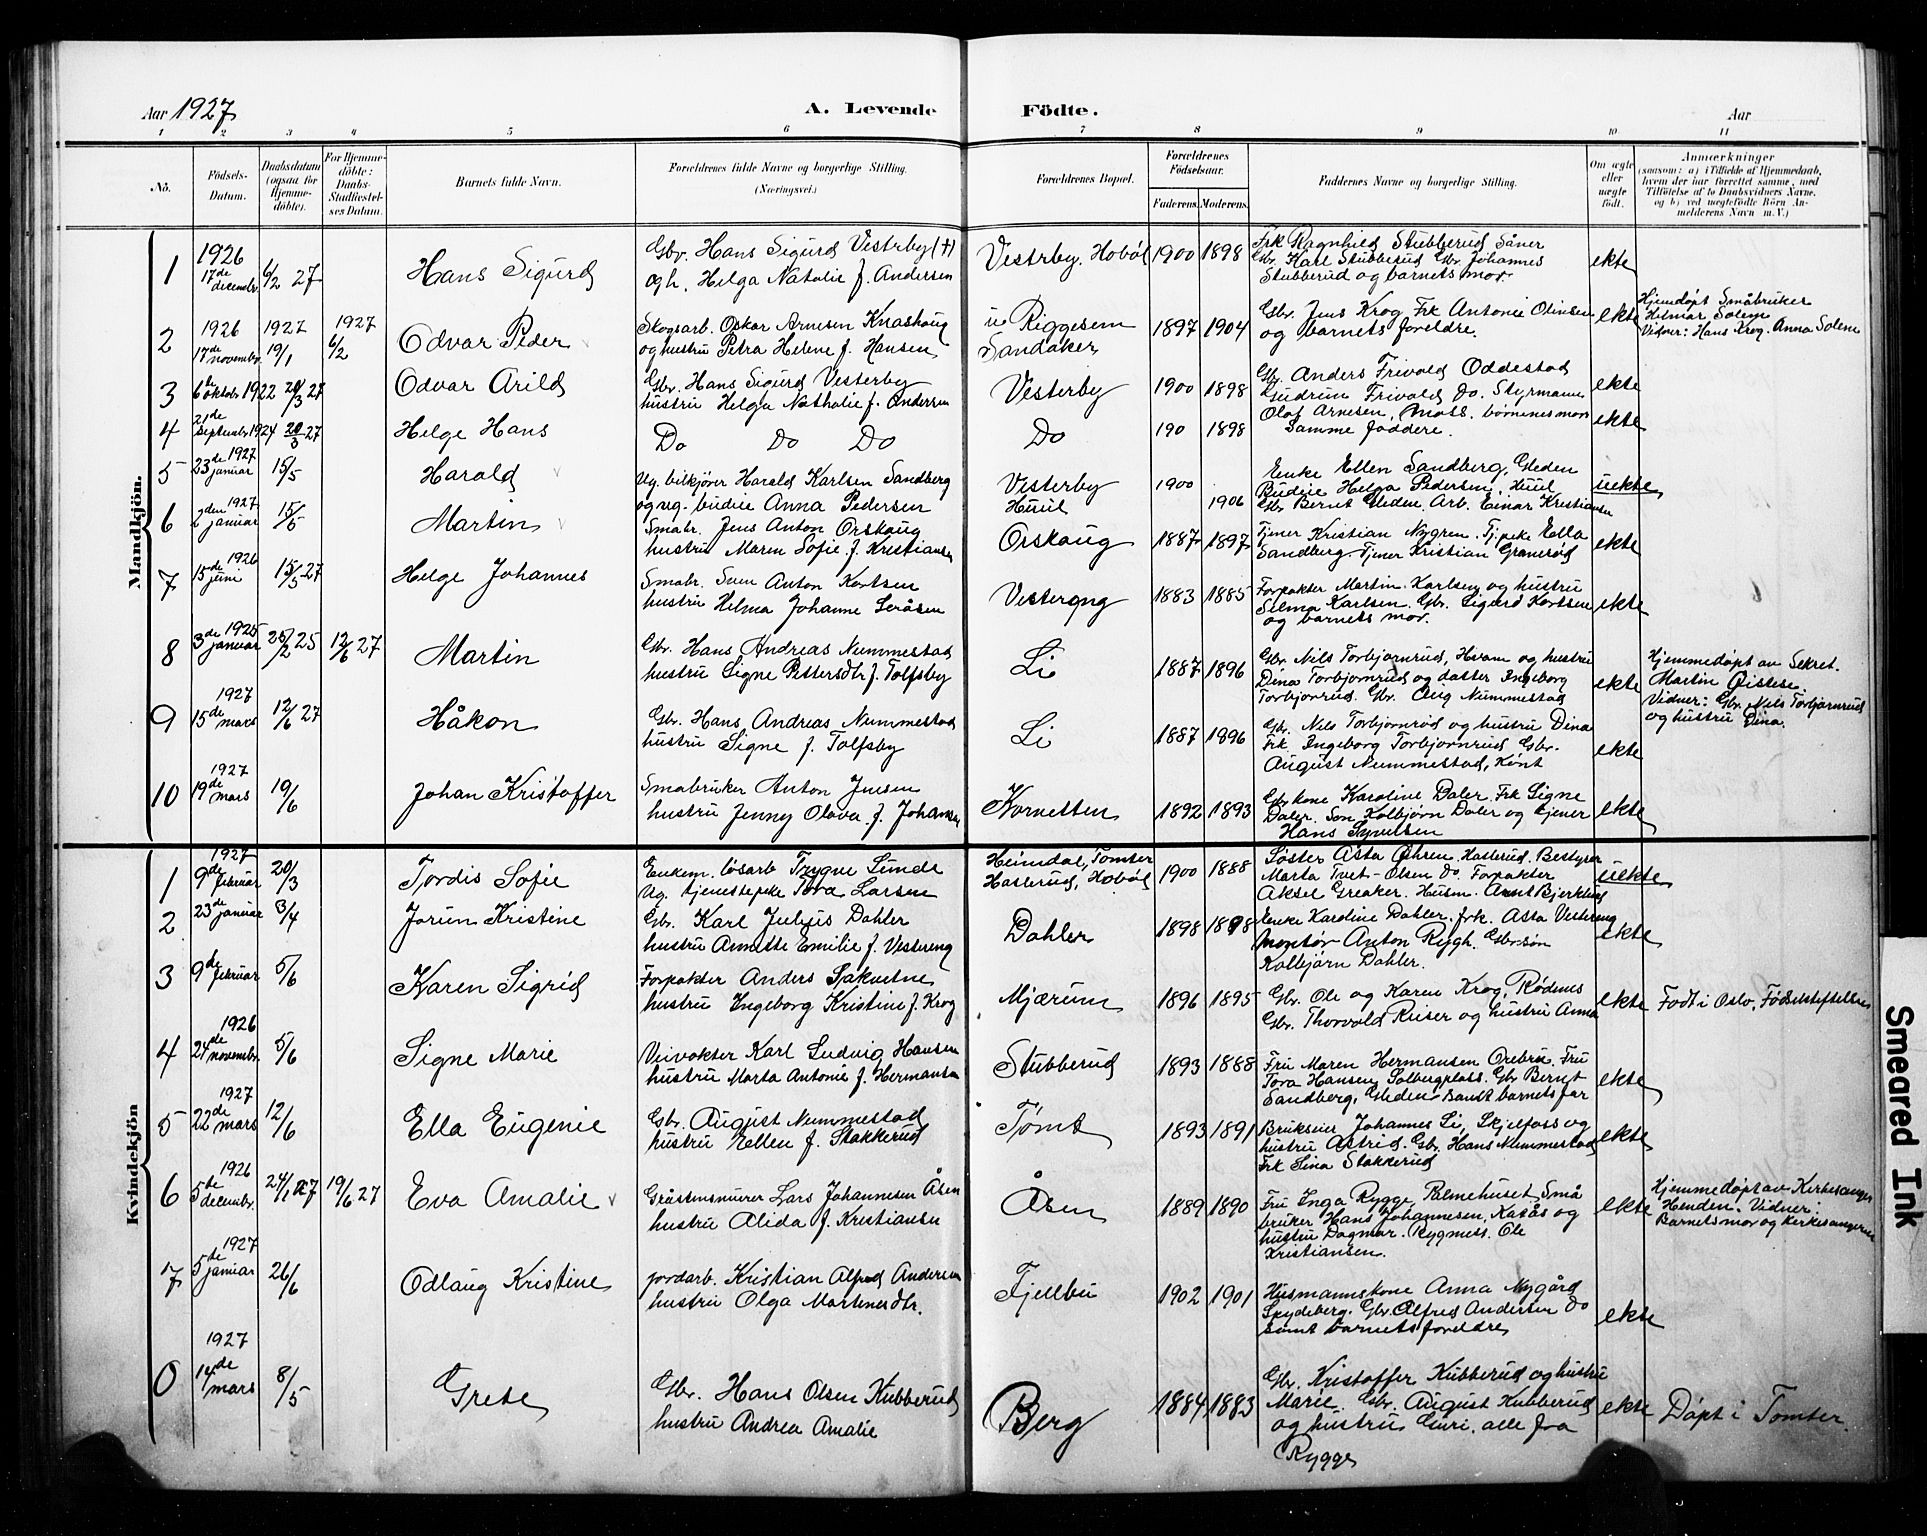 Aar 1927
A. Levende Födte.
Aar
1 2 3 4 5 6 7 8 9 10 11
No.
Födsels-Datum.
Daabsdatum (ogsaa for Hjemme-döbte).
For Hjemme-döbte: Daabs-Stadfæstel-ses Datum.
Barnets fulde Navn.
Forældrenes fulde Navne og borgerlige Stilling. (Næringsvei.)
Forældrenes Bopæl.
Forældrenes Födselsaar.
Faderens. Moderens.
Faddernes Navne og borgerlige Stilling.
Om ægte eller uægte födt.
Anmærkninger
(saasom: a) i Tilfælde af Hjemmedaab, hvem der har forrettet samme, med Tilföielse af to Daabsvidners Navne, og b) ved uægtefödte Börn An-melderens Navn m. V.)
Mandkjön.
1 1926 17de decembr. 6/2 27 Hans Sigurd
Gbr. Hans Sigurd Vestrby (+)
og h. Helga Natalie f. Andersen
Vestrby. Hobøl 1900 1898
Frk Ragnhild Stubberud Såner
Gbr. Karl Stubberud Gbr. Johannes
Stubberud og barnets mor.
ekte
2 1926 17de novembr. 1927 19/1 1927 6/2 Odvar Peder
Skogsarb. Oskar Arnesen Knashaug
og hustru Petra Helene f. Hansen
u Riggesem
Sandaker
1897 1904
Gbr. Jens Krog Frk Antonie Olinsen
og barnets foreldre.
ekte
Hjemdøpt Småbruker
Hilmar Solem
Vidner: Hans Krog. Anna Solem
3 6te oktobr 1922 20/3 27 Odvar Arild
Gbr. Hans Sigurd Vesterby
hustru Helga Nathalie f. Andersen
Vesterby 1900 1898
Gbr. Anders Frivold Oddestad
Gudrun Frivold Do. Styrmann
Olaf Arnesen, Moss. børnenes mor
ekte
4 21de septembr 1924 20/3 27 Helge Hans
Do Do Do
Do 190 1898
Samme faddere.
ekte
5 23de januar 1927 15/5 Harald
Ug. bilkjører Harald Karlsen Sandberg
og ug. budeie Anna Pedersen
Vesterby
Huul
1900 1906
Enke Ellen Sandberg, Gleden
Budeie Helga Pedersen, Huul
Gbr Bernt Gleden. Arb. Einar Kristiansen
uekte
6 2den januar 1927 15/5 Martin
Småbr. Jens Anton Orskaug
hustru Maren Sofie f. Kristiansen
Orskaug 1887 1897
Tjener Kristian Nygren. Tj.pike Ella
Sandberg Tjener Kristian Granerød
ekte
7 15de juni 1926 15/5 27 Helge Johannes
Småbr. Sven Anton Kortsen
hustru Hilma Johanne Leråsen
Vestereng 1883 1885
Forpakter Martin Karlsen og hustru
Selma Karlsen. Gbr. Sigurd Kortsen
og barnets mor.
ekte
8 3de januar 1925 25/2 25 12/6 27 Martin
Gbr. Hans Andreas Nummestad
hustru Signe Pettersdtr f. Tolfsby
Li 1887 1896
Gbr. Nils Torbjørnrud, Hvam og hustru
Dina Torbjørnrud og datter Ingeborg
Torbjørnrud. Gbr. Aug Nummestad
ekte
Hjemmedøpt av Sekret.
Martin Øistese.
Vidner: Gbr. Nils Torbjørnrud
og hustru Dina.
9 1927 15de mars 12/6 27 Håkon
Gbr. Hans Andreas Nummestad
hustru Signe f. Tolfsby
Li 1887 1896
Gbr. Nils Torbjørnrød og hustru Dina
Frk Ingeborg Torbjørnrud Gbr.
August Nummestad, Kønt
ekte
10 1927 19de mars 19/6 Johan Kristoffer
Småbruker Anton Jensen
hustru Jenny Olava f. Johansen
Kornetten 1892 1893
Gbr.kone Karoline Daler Frk Signe
Daler. Søn Kolbjørn Daler og tjener
Hans Syvertsen
ekte
Kvindekjön
1 1927 9de februar 20/3 Tordis Sofie
Enkem. løsarb Trygve Lunde
Ug. tjenestepike Tora Larsen
Heimdal, Tomter
Haslerud, Hobøl
1900 1888
Søster Asta Øhren, Haslerud. Bestyrer
Marta Tvet-Olsen Do. Forpakter
Aksel Greaker. Husm. Arnt Bjerklund
uekte
2 23de januar 3/4 Jorun Kristine
Gbr. Karl Julius Dahler
hustru Annette Emilie f. Vestereng
Dahler 1898 1898
Enke Karoline Dahler. frk. Asta Vestereng
Montør Anton Rygh. Gbr.søn
Kolbjørn Dahler.
ekte
3 9de februar 5/6 Karen Sigrid
Forpakter Anders Spakvetne
hustru Ingeborg Kristine f. Krog
Mjærum 1896 1895
Gbr. Ole og Karen Krog, Rødenes
Gbr. Thorvald Kiser og hustru Anna
ekte
Født i Oslo, Fødselstiftelsen
4 1926 24de novembr. 5/6 Signe Marie
Veivokter Karl Ludvig Hansen
hustru Marta Antonie f. Hermansen
Stubberud 1893 1888
Fru Maren Hermansen Örebro. Fru
Tora Hansen, Solbergplass. Gbr Bernt
Sandberg, Gleden samt barnets far
ekte
5 1927 22de mars 12/6 Ella Eugenie
Gbr. August Nummestad
hustru Ellen f. Stokkerud
Tømt 1893 1891
Brukseier Johannes Li, Skjelfoss og
hustru Astrid. Gbr. Hans Nummestad
Frk Lina Stokkerud
ekte
6 1926 5de decembr. 24/1 27 19/6 27 Eva Amalie
Gråstensmurer Lars Johannesen Åsen
hustru Alida f. Kristiansen
Åsen 1889 1890
Fru Inga Rygge, Palmehuset, Små
bruker Hans Johannesen, Kasås og
hustru Dagmar. Rygmess. Ole
Kristiansen.
ekte
Hjemmedøpt av Kirkesanger
Henden. Vidner:
Barnets mor og kirkesangeren
7 1927 5te januar 26/6 Odlaug Kristine
jordarb. Kristian Alfred Andersen
hustru Olga Martinesdtr.
Fjellbu 1902 1901
Husmannskone Anna Nygård
Spydeberg. Gbr. Alfred Andersen Do
samt barnets foreldre
ekte
0 1927 14de mars 8/5 Grete
Gbr. Hans Olsen Kubberud
hustru Andrea Amalie
Berg 1884 1883
Gbr. Kristoffer Kubberud og hustru
Marie. Gbr. August Kubberud
og hustru Guri. alle fra
Rygge
ekte
Døpt i Tomter.
Smeared Ink